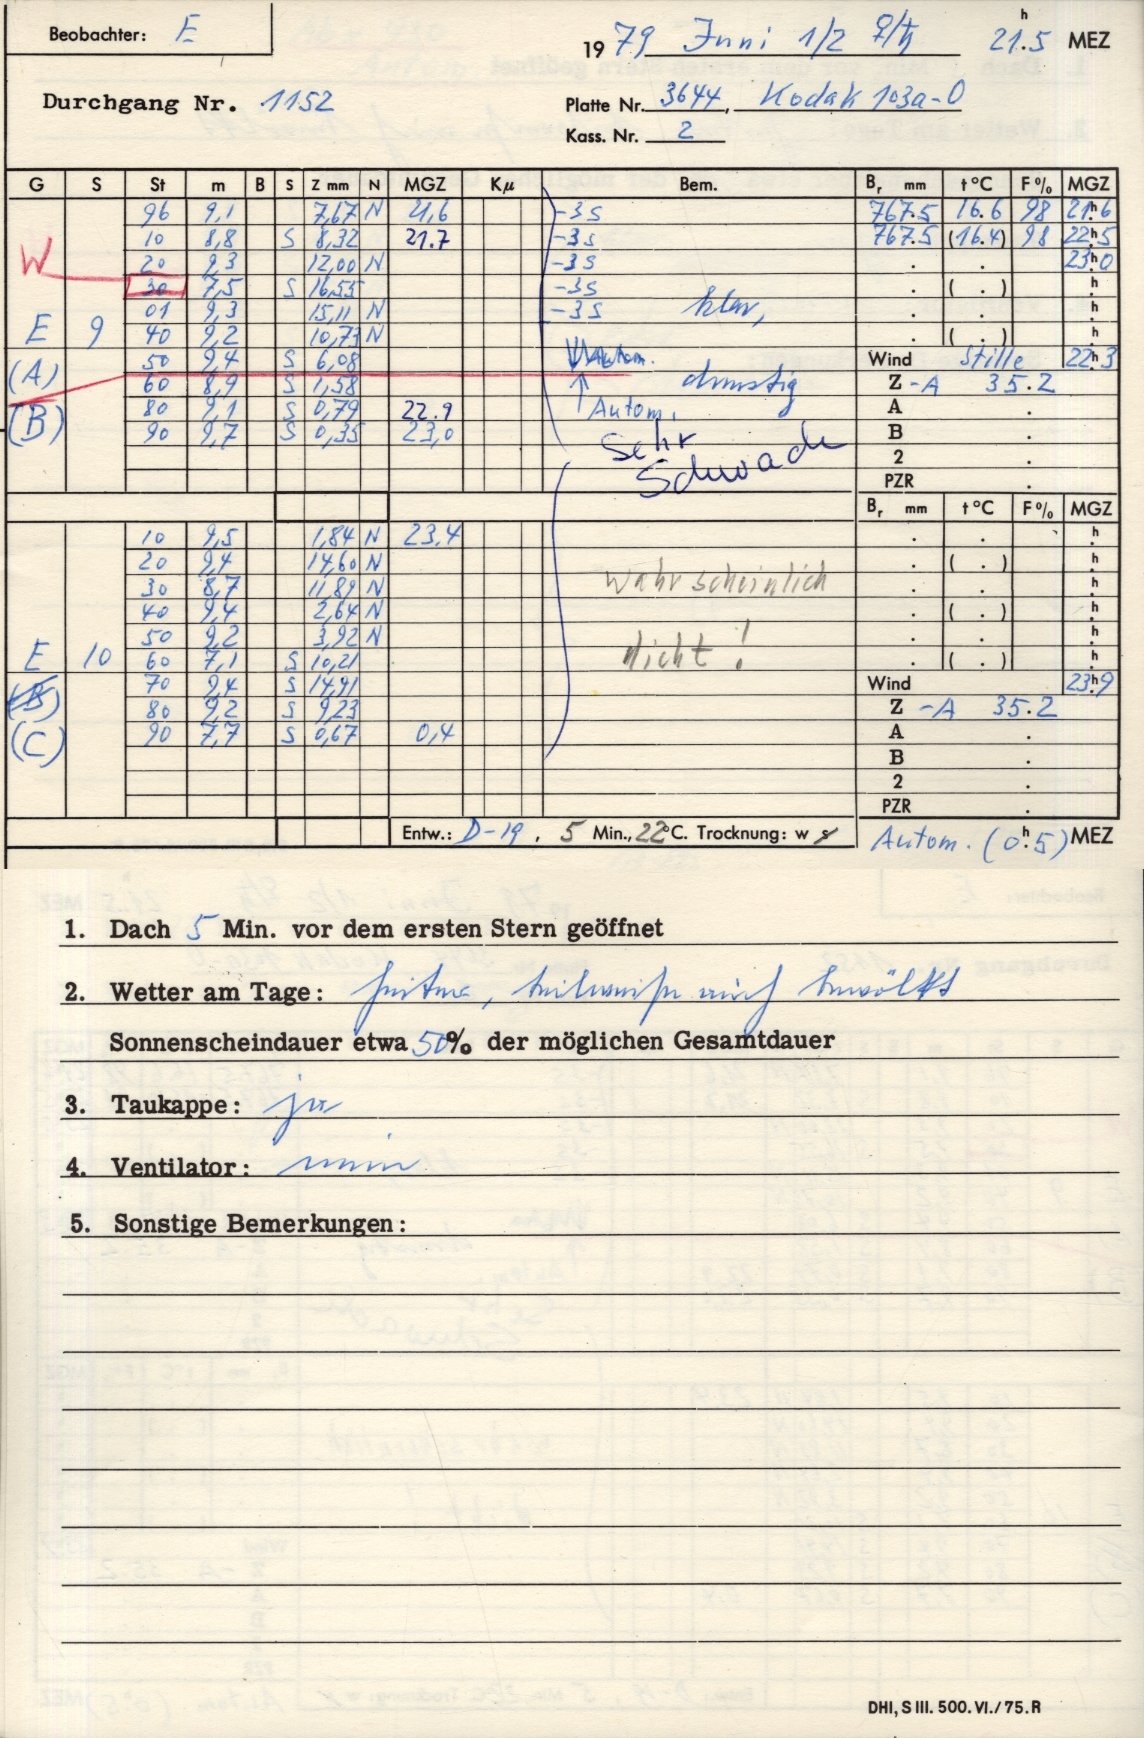 Beobachter: E
1979 Juni 1/2 ♀/♄ 21h.5 MEZ
Durchgang Nr. 1152
Platte Nr. 3644, Kodak 103a-O
Kass. Nr. 2
G S St m B S Z mm N MGZ Kμ Bem. Br mm t°C F% MGZ
96 9,1 7,67 N 21,6 -3s 767.5 16.6 98 21h6
10 8,8 S 8,32 21.7 -3s 767.5 (16.4) 98 22h5
W 20 9,3 12,00 N -3s . . 23h0
30 7,5 S 16,55 -3s . ( . ) h
01 9,3 15,11 N -3s klar, . . h
E 9 40 9,2 10,73 N . ( . ) h
(A) 50 9,4 S 6,08 Autom. Wind Stille 22h3
60 8,9 S 1,58 dunstig Z -A 35.2
(B) 80 9,1 S 0,79 22.9 Autom. A .
90 9,7 S 0,35 23,0 sehr B .
schwach 2 .
PZR .
Br mm t°C F% MGZ
10 9,5 1,84 N 23,4 . . h
20 9,4 14,60 N . ( . ) h
30 8,7 11,89 N wahrscheinlich . . h
40 9,4 2,64 N . ( . ) h
50 9,2 3,92 N . . h
E 10 60 7,1 S 10,21 nicht! . ( . ) h
(B) 70 9,4 S 14,91 Wind 23h9
80 9,2 S 9,23 Z -A 35.2
(C) 90 7,7 S 0,67 0,4 A .
B .
2 .
PZR .
Entw.: D-19, 5 Min., 22°C. Trocknung: w s Autom. (0h.5) MEZ
1. Dach 5 Min. vor dem ersten Stern geöffnet
2. Wetter am Tage: heiter, teilweise auch bewölkt
Sonnenscheindauer etwa 50% der möglichen Gesamtdauer
3. Taukappe: ja
4. Ventilator: nein
5. Sonstige Bemerkungen:
DHI, S III. 500. VI./75. R